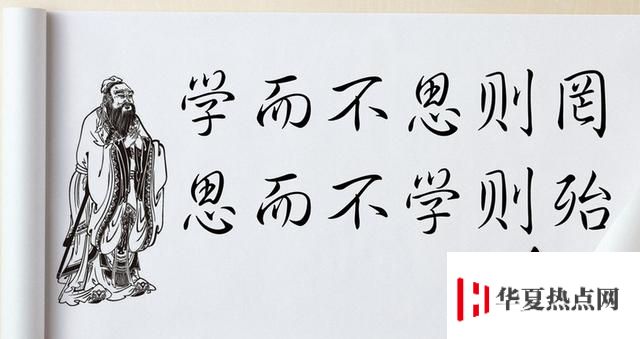 学而不思则罔
思而不学则殆
华夏热点网